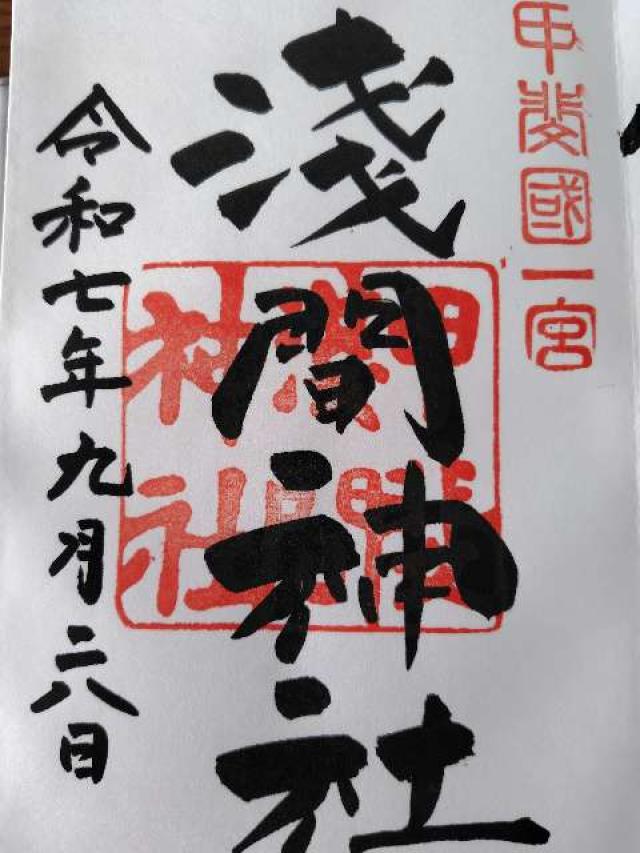 甲斐國一宮
淺間神社
令和七年九月二八日